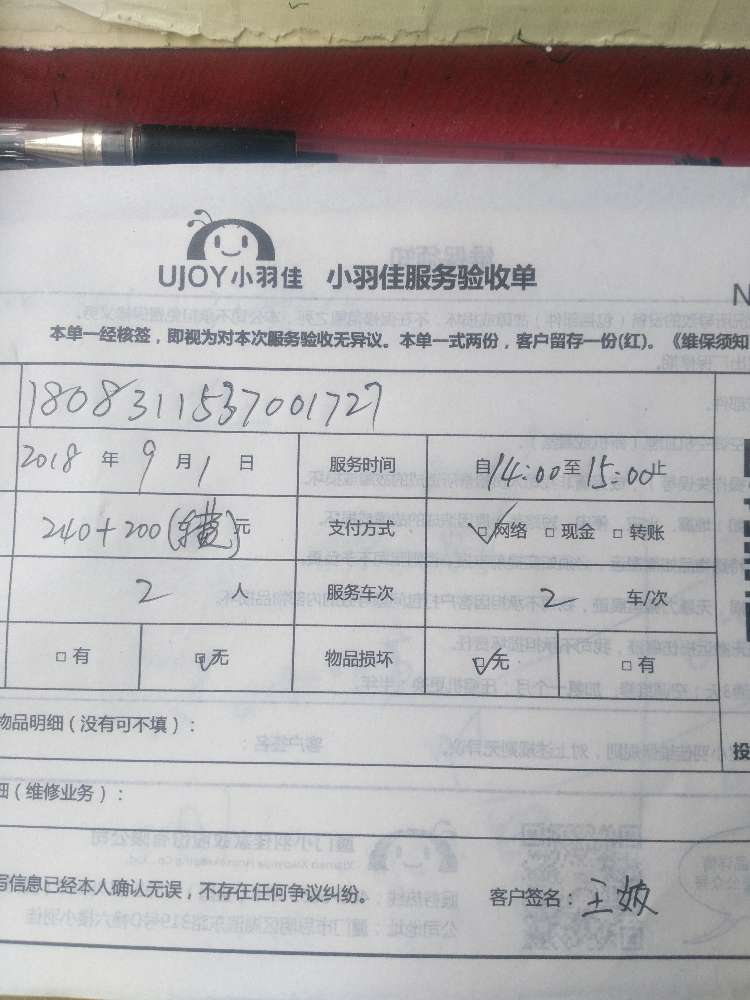 UJOY小羽佳 小羽佳服务验收单
N
本单一经核签，即视为对本次服务验收无异议。本单一式两份，客户留存一份(红)。《维保须知
1808311537001727
2018 年 9 月 1 日 服务时间 自14:00至15:00止
240+200( )元 支付方式 □网络 □现金 □转账
2 人 服务车次 2 车/次
□有 □无 物品损坏 □无 □有
物品明细（没有可不填）：
投
细（维修业务）：
写信息已经本人确认无误，不存在任何争议纠纷。 客户签名：王